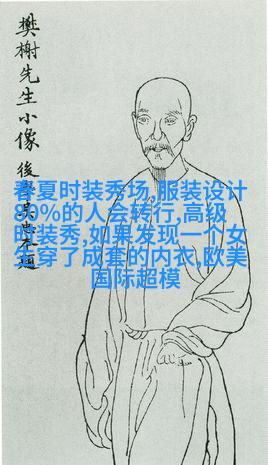 樊榭先生小像
後
春夏时装秀场,服装设计
80%的人会转行,高级
时装秀,如果发现一个女
生穿了成套的内衣,欧美
国际超模